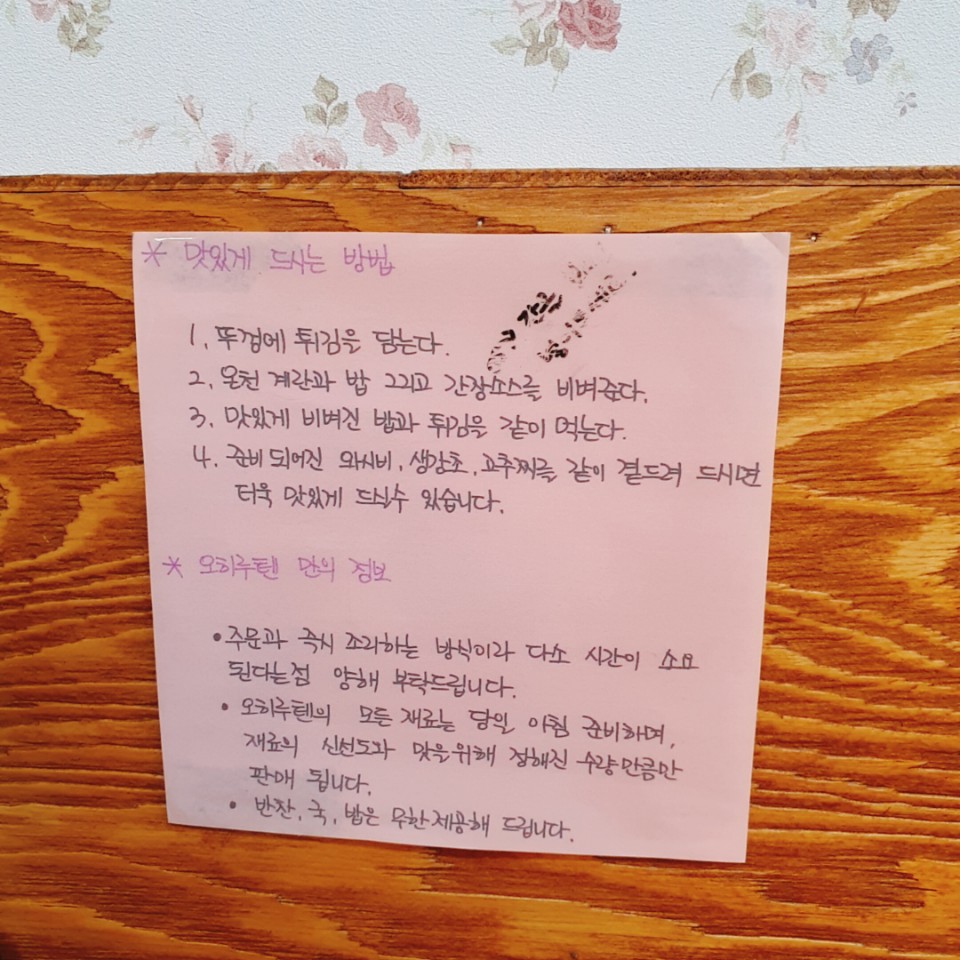 * 맛있게 드시는 방법
1. 뚜껑에 튀김을 담는다.
2. 온천 계란과 밥 그리고 간장소스를 비벼준다.
3. 맛있게 비벼진 밥과 튀김을 같이 먹는다.
4. 준비 되어진 와사비, 생강초, 고추찌를 같이 곁드려 드시면
더욱 맛있게 드실수 있습니다.
* 오히루텐 만의 정보
• 주문과 즉시 조리하는 방식이라 다소 시간이 소요
된다는점 양해 부탁드립니다.
• 오히루텐의 모든 재료는 당일 아침 준비하며,
재료의 신선도와 맛을위해 정해진 수량만큼만
판매 됩니다.
• 반찬, 국, 밥은 무한제공해 드립니다.